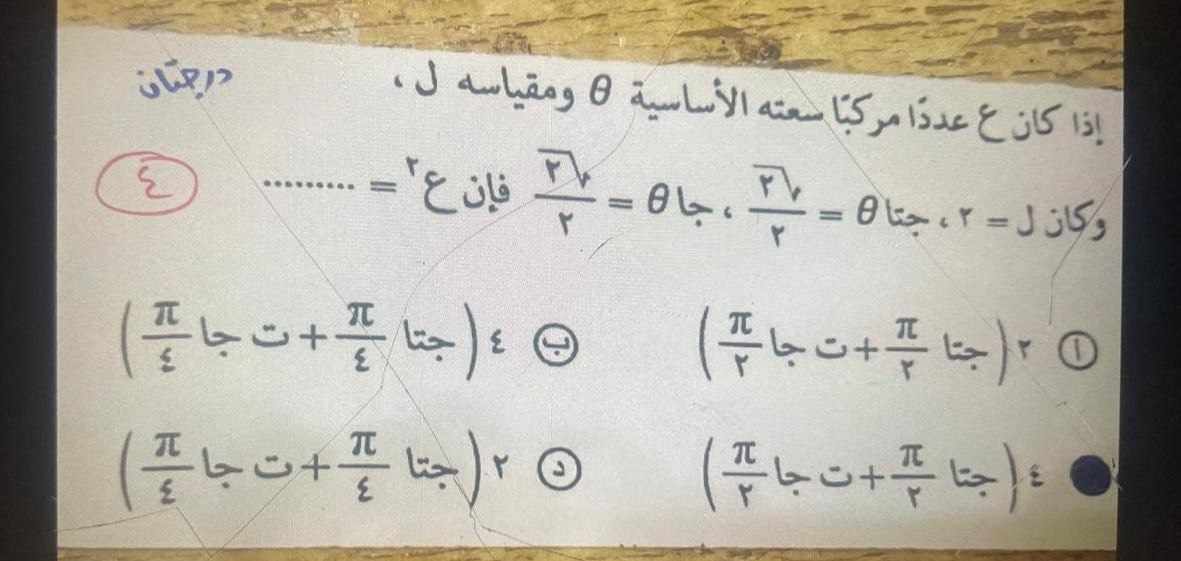 إذا كان ع عددًا مركبًا سعته الأساسية θ ومقياسه ل ،
درجتان
وكان ل = ٢ ، جتا θ = √٢/٢ ، جا θ = √٢/٢ فإن ع² = .........
٤
أ ٢ (جتا π/٢ + ت جا π/٢)
ب ٤ (جتا π/٤ + ت جا π/٤)
٤ (جتا π/٢ + ت جا π/٢)
د ٢ (جتا π/٤ + ت جا π/٤)